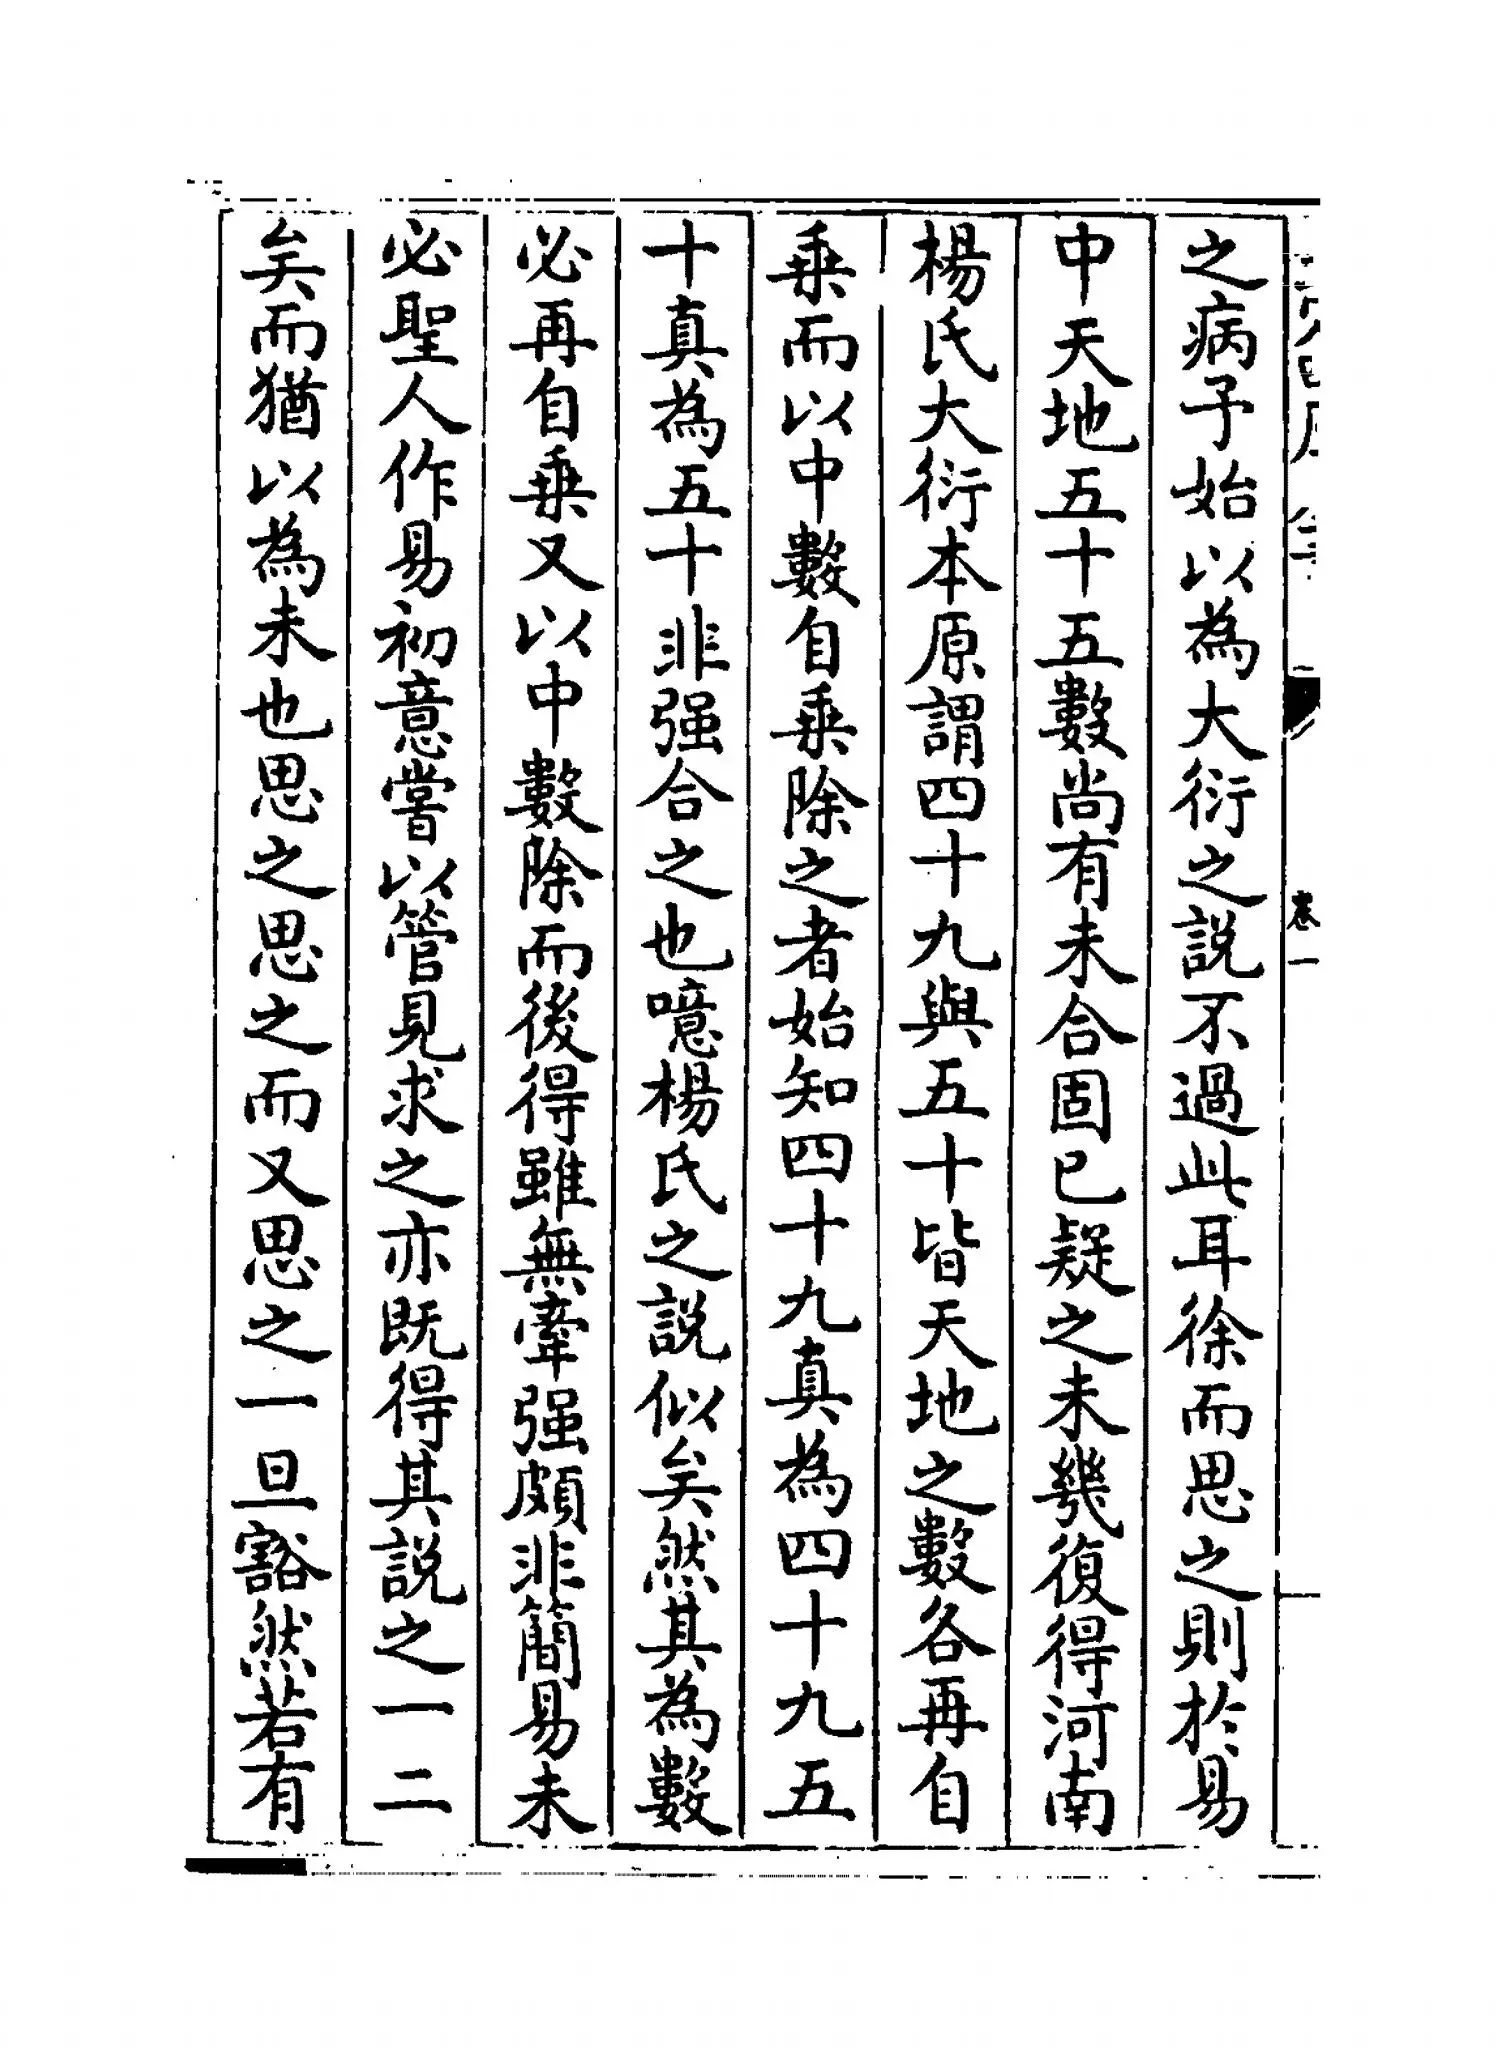 之病子始以為大衍之説不過此耳徐而思之則於易
中天地五十五數尚有未合固已疑之未幾復得河南
楊氏大衍本原謂四十九與五十皆天地之數各再自
乗而以中數自乗除之者始知四十九真為四十九五
十真為五十非强合之也噫楊氏之説似矣然其為數
必再自乗又以中數除而後得雖無牽强頗非簡易未
必聖人作易初意嘗以管見求之亦既得其説之一二
矣而猶以為未也思之思之而又思之一旦豁然若有
卷一